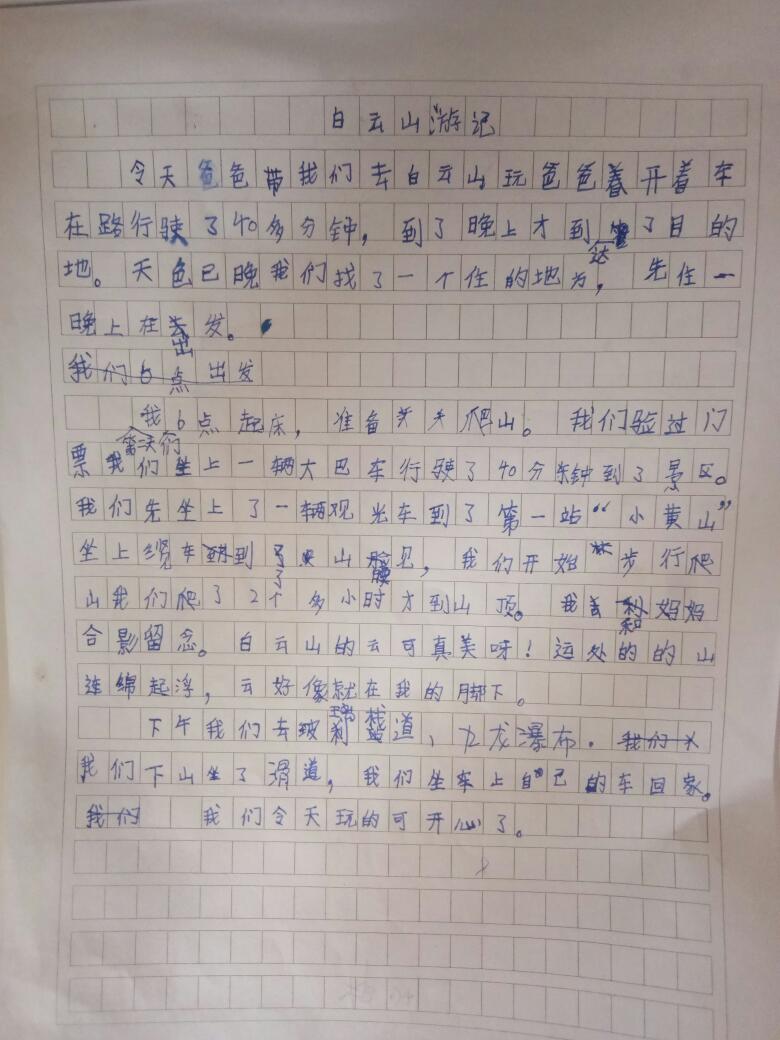 白云山游记
今天爸爸带我们去白云山玩爸爸着开着车
在路行驶了40多分钟，到了晚上才到达了目的
地。天色已晚我们找了一个住的地方，先住一
晚上在出发。
我们6点出发
我6点起床，准备关关爬山。我们验过门
第二天们
票我们坐上一辆大巴车行驶了40分钟到了景区。
我们先坐上了一辆观光车到了第一站“小黄山”
坐上缆车到了山腰见，我们开始步行爬
山我们爬了2个多小时才到山顶。我和妈妈
合影留念。白云山的云可真美呀！远处的的山
连绵起浮，云好像就在我的脚下。
下午我们去玻璃栈道，九龙瀑布。我们
我们下山坐了滑道，我们坐车上自己的车回家。
我们 我们今天玩的可开心了。